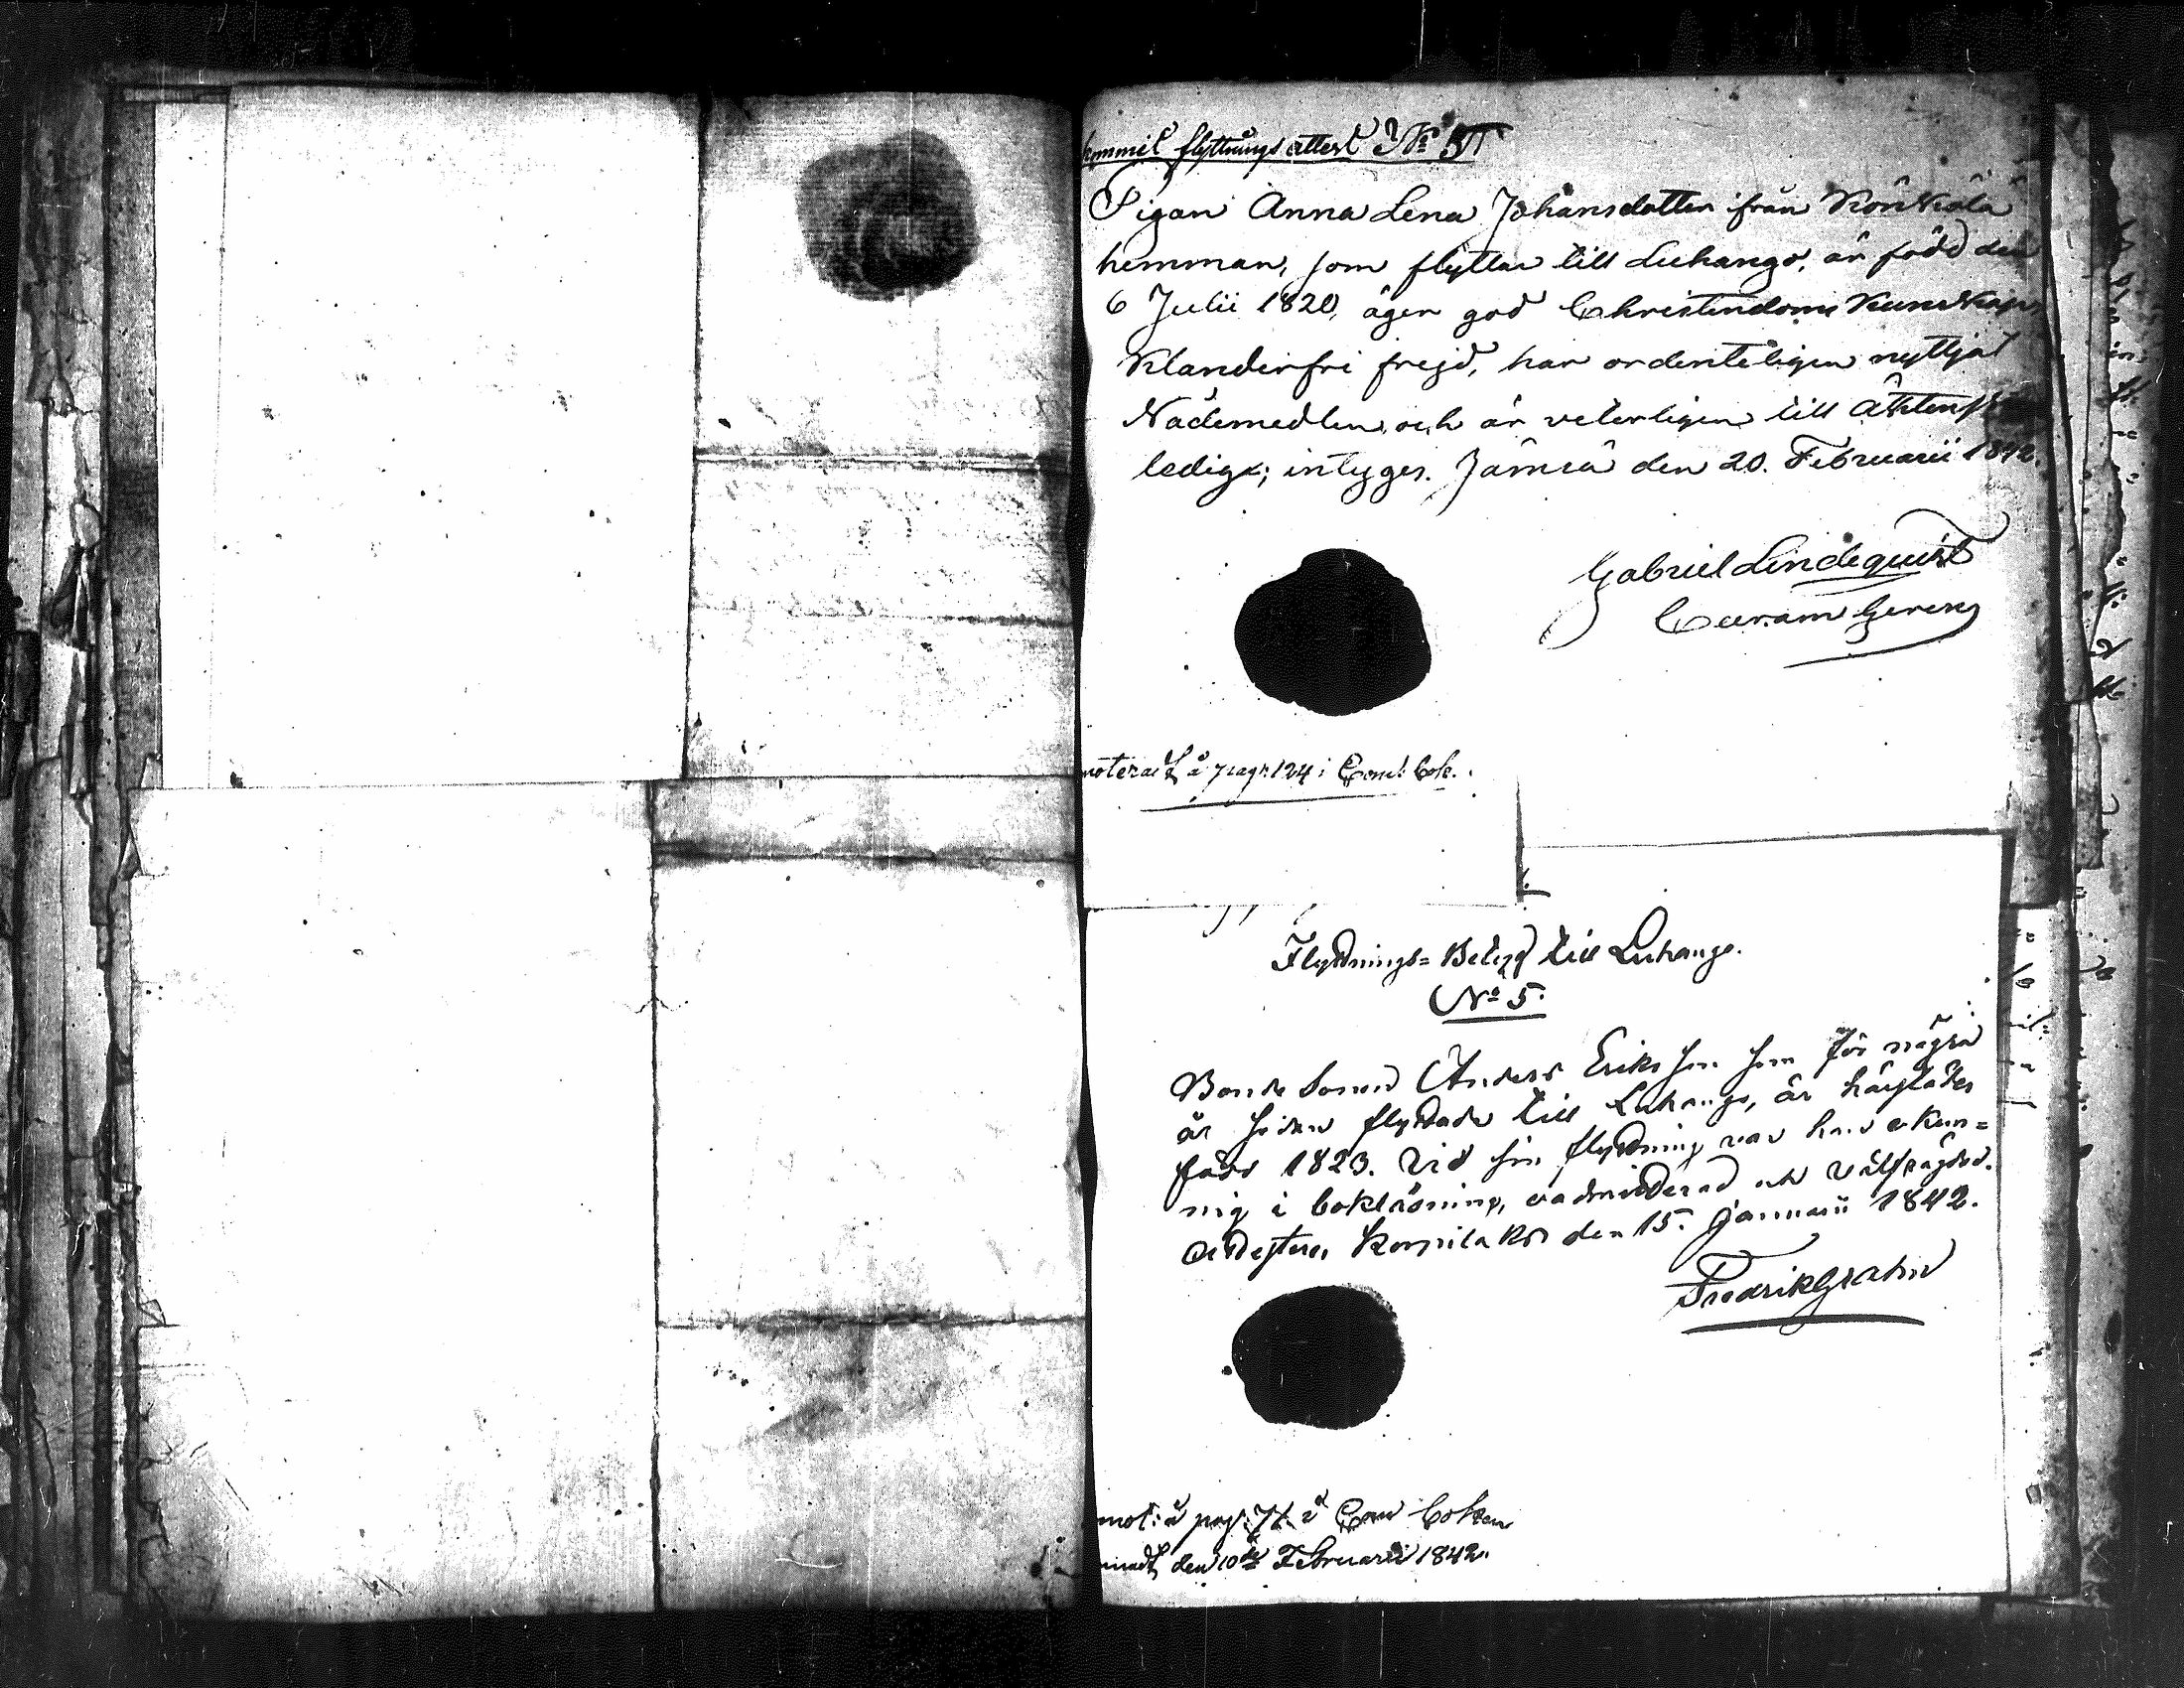 flyttnings attest No 5
Pigan Anna Lena Johansdotter ifrån Könkälä
hemman, som flyttar till Luhango, är född den
6 Julii 1820, äger god Christendoms Kunskap,
Klanderfri frejd, har ordenteligen nyttjat
Nådemedlen och är veterligen till Äktenskap
ledig; intygges. Jämsä den 20. Februarii 1842.
Gabriel Lindequist
Curam Gerens
noterad å pag: 124 i Com: bok.
Flyttnings=Betyg till Luhango.
No 5.
Bonde Sonen Anders Eriksson som för några
år sedan flyttade till Luhango, är härstädes
född 1823. Vid sin flyttning var han okun=
nig i bokläsning, oadmitterad och välfrägdad.
Attesterar Korpilaks den 15. Januarii 1842.
Fredrik Grahn
not: å pag: 71 i Com boken
den 10de Februarii 1842.